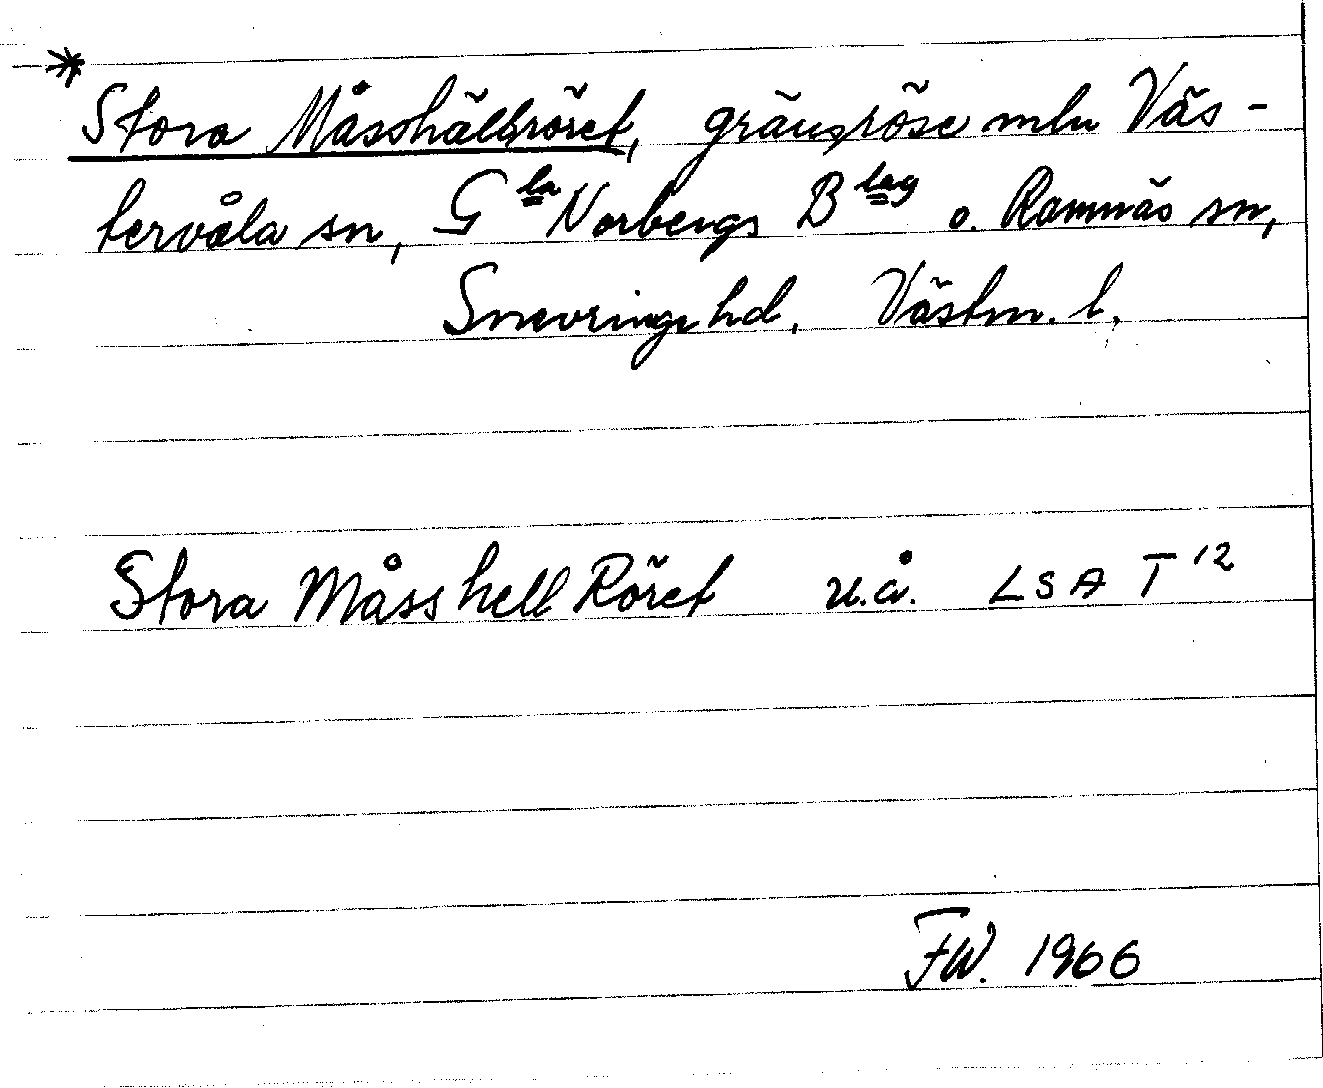 * Stora Måsshällsröret, gränsröse mln Väs-
tervåla sn, Gla Norbergs Blag o. Ramnäs sn,
Snevringe hd, Västm. l.
Stora Måsshell Röret u.å. LSA T 12
FW. 1966